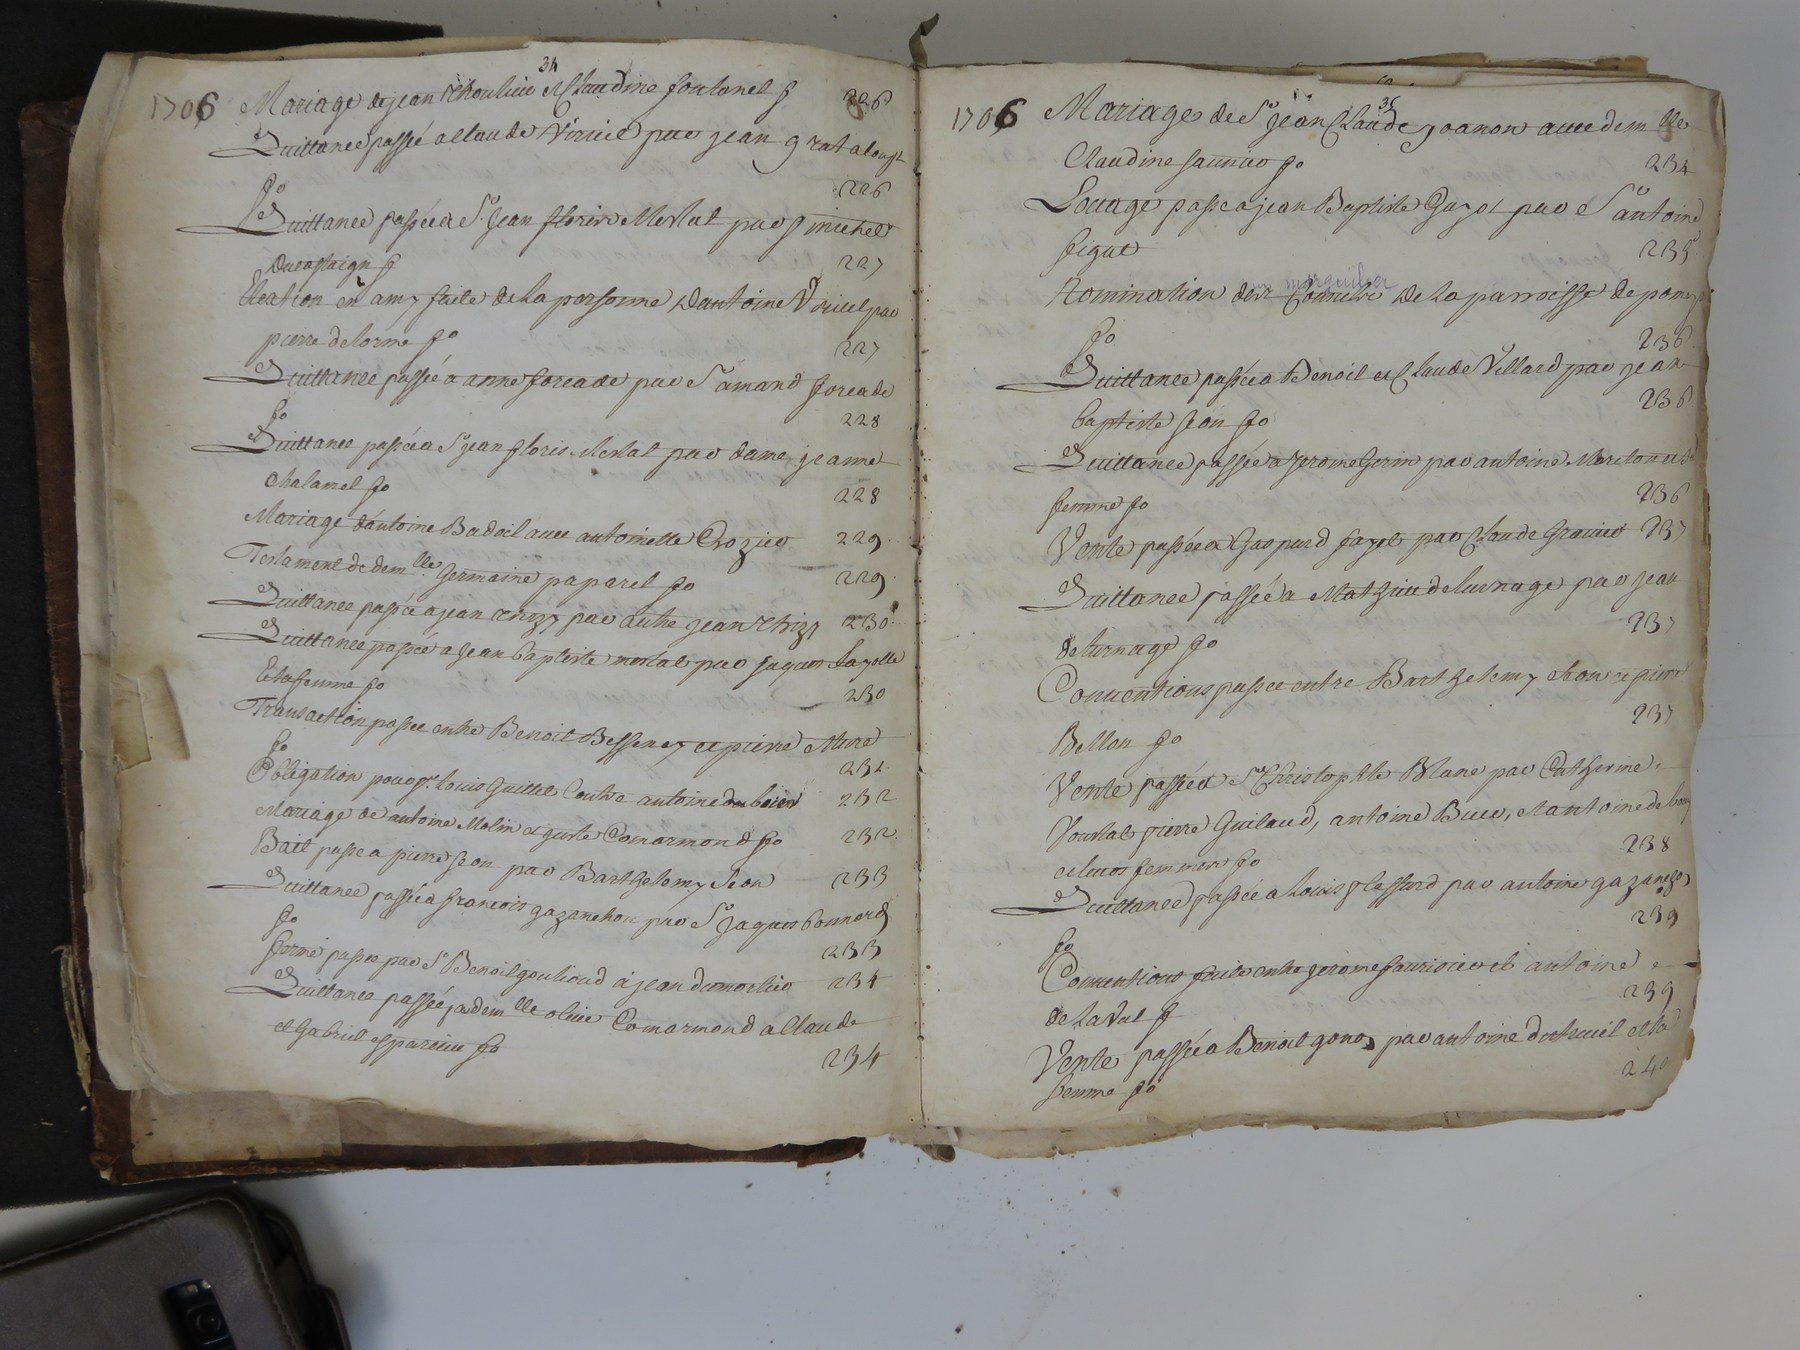 34
1706 Mariage de jean et Claudine fontanel f
226
Quittance passé a Claude Viricel par jean gratalougt
fo 226
Quittance passée a Sr jean floris Merlat par michel
f 227
Election en amy faite de la personne dantoine Viricel par
pierre delorme fo 227
Quittance passée a anne foreade par Sr amand foreade
fo 228
Quittance passée a Sr jean floris Merlat par dame jeanne
Chalamel fo 228
Mariage dantoine Badoil avec antoinette Crozier 229
Testament de demlle germaine paparel fo 229
Quittance passée a jean par autre jean 230
Quittance passée a jean baptiste merlat par jaques Layolle
Et sa femme fo 230
Transaction passee entre Benoit Bessenay et pierre
fo 232
Obligation pour Sr louis Guillet Contre antoine du bois 232
Mariage de antoine Molin et Comarmond fo 232
Bail passe a pierre seon par Barthelemy Seon 233
Quittance passée a francois gazanchon par Sr Jaques bonnard
fo 233
ferme passée par Sr Benoit goulioud a jean dumortier 234
Quittance passée par demlle olive Comarmond a Claude
et Gabriel fo 234
35
1706 Mariage de Sr jean Claude joanon avec demlle
Claudine saunier fo 234
Louage passe a jean Baptiste Guyot par Sr antoine
figat 235
Nomination de marguilier de la parroisse de pomeys
fo 236
Quittance passée a Benoit et Claude Villard par jean
236
baptiste seon fo
Quittance passée a jerome Gorin par antoine
femme fo 236
Vente passée a Gaspard fayet par Claude Granier 237
Quittance passée a Mathieu deturnage par jean
237
deturnage fo
Conventions passee entre Barthelemy et pierre
237
Bellon fo
Vente passée a Sr Christophle Blanc par Catherine
pierre Guilaud, antoine et antoine
238
et leurs femmes fo
Quittance passée a Louis plassard par antoine
239
fo
Conventions faite entre jerome et antoine
239
de Laval f
Vente passée a Benoit gonon par antoine dutreuil et sa
240
femme fo